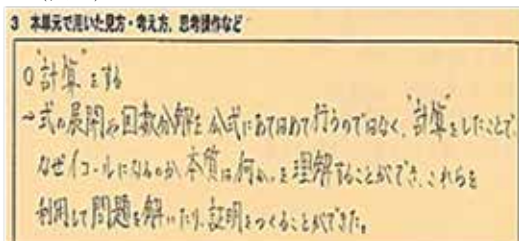 3 本単元で用いた見方・考え方、思考操作など
○"計算"をする
→式の展開や因数分解を公式にあてはめて行うのではなく、"計算"をしたことで、
なぜイコールになるのか、本質は何か。を理解することができ、これらを
利用して問題を解いたり、証明をつくることができた。